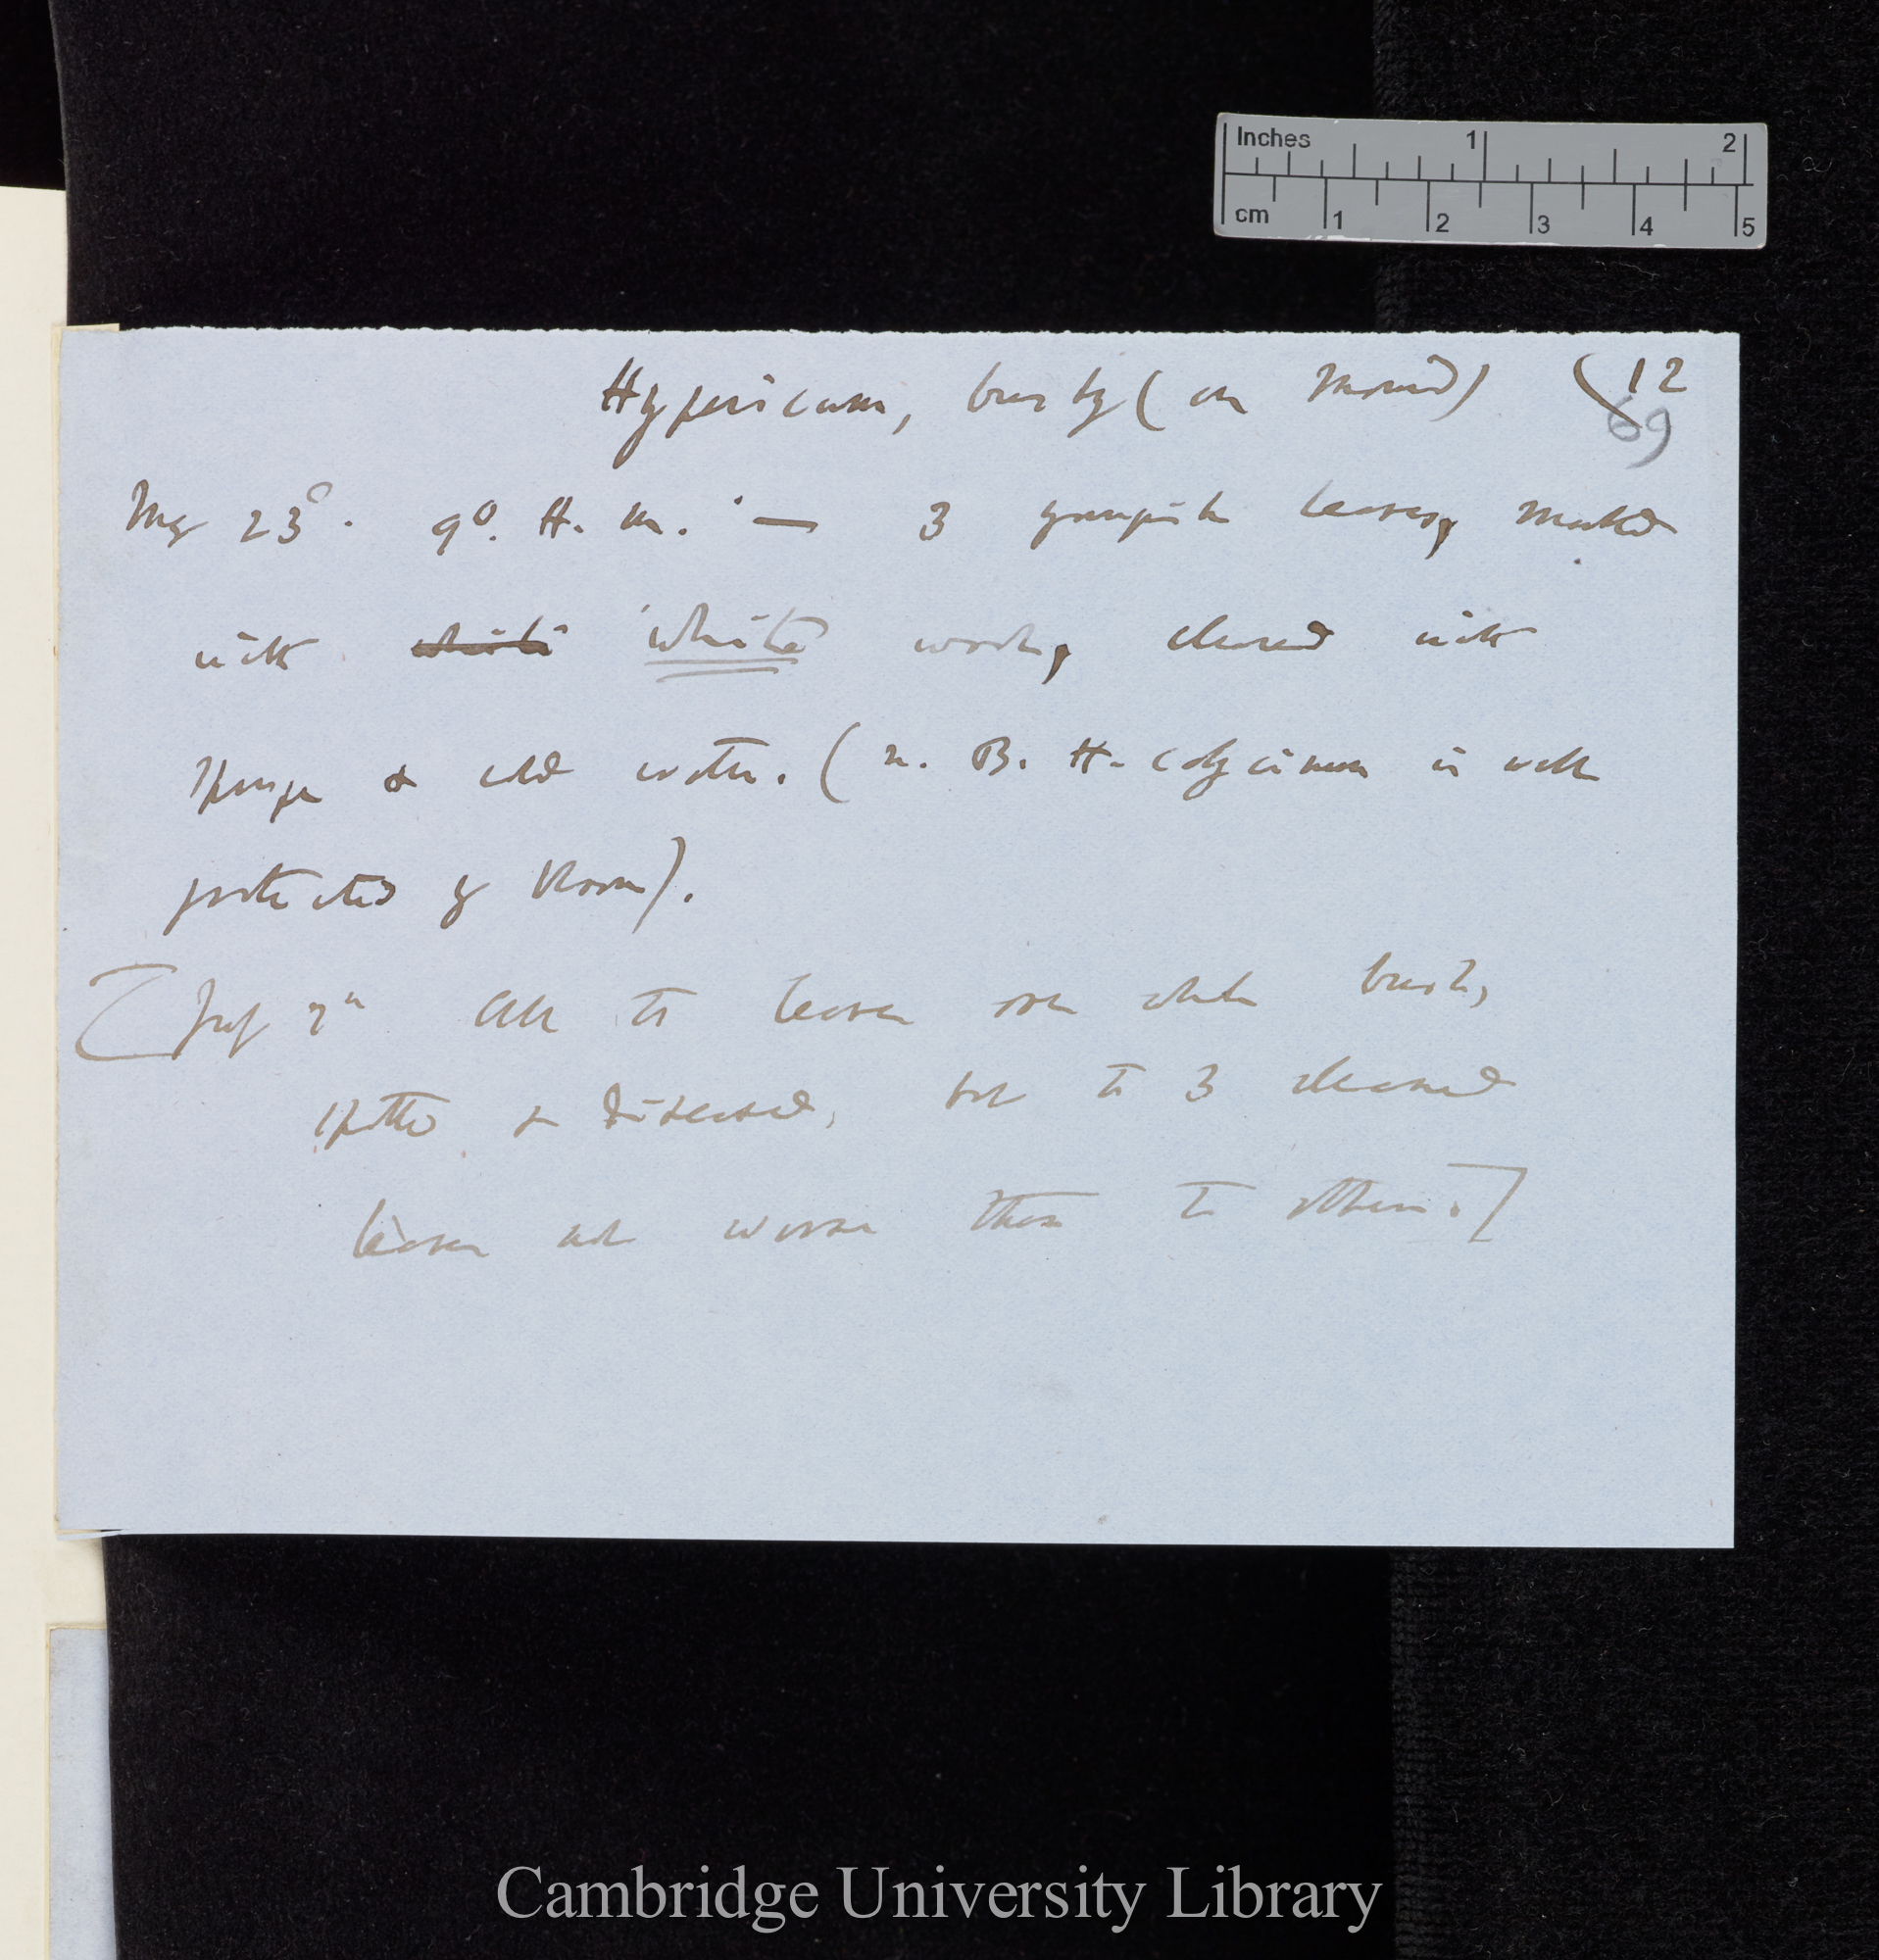 Inches 1 2
cm 1 2 3 4 5
Hypericum, bushy (on Mound) (12
69
May 23°. 9°. A. m. — 3 youngish leaves, marked
with white white worsted, cleaned with
sponge & cold water. (N. B. H. calycinum is well
protected by bloom).
[July 7th All the leaves over whole bush,
spotted & diseased, but the 3 cleaned
leaves not worse than the others.]
Cambridge University Library